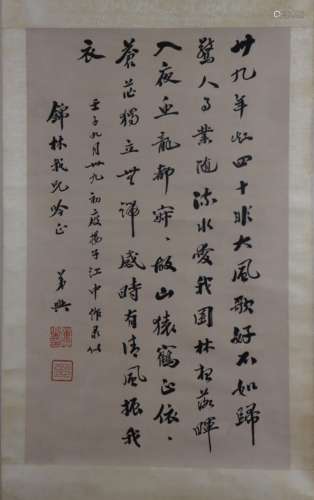 卅九年知四十非大風歌好不如歸
驚人事業隨流水愛我園林想落暉
入夜魚龍都寂、故山猿鶴正依、
蒼茫獨立無端感時有清風振我
衣
壬子九月卅九初度揚子江中作录似
錦林我兄吟正 弟興